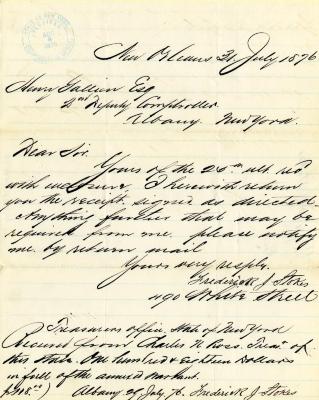 New Orleans 31 July 1876
Henry Gallien Esq
2nd Deputy Comptroller
Albany. New York.
Dear Sir.
Yours of the 26th ult recd
with enclosure, I herewith return
you the receipt signed as directed.
Anything further that may be
required from me. please notify
me. by return mail
Yours very respy.
Frederick J Stokes
490 Street
Treasurers Office. State of New York
Received from Charles N. Ross. Treasr of
this State. One hundred & Eighteen Dollars
in full of the annexed Warrant.
$118.00) Albany 29 July 76. Frederick J Stokes